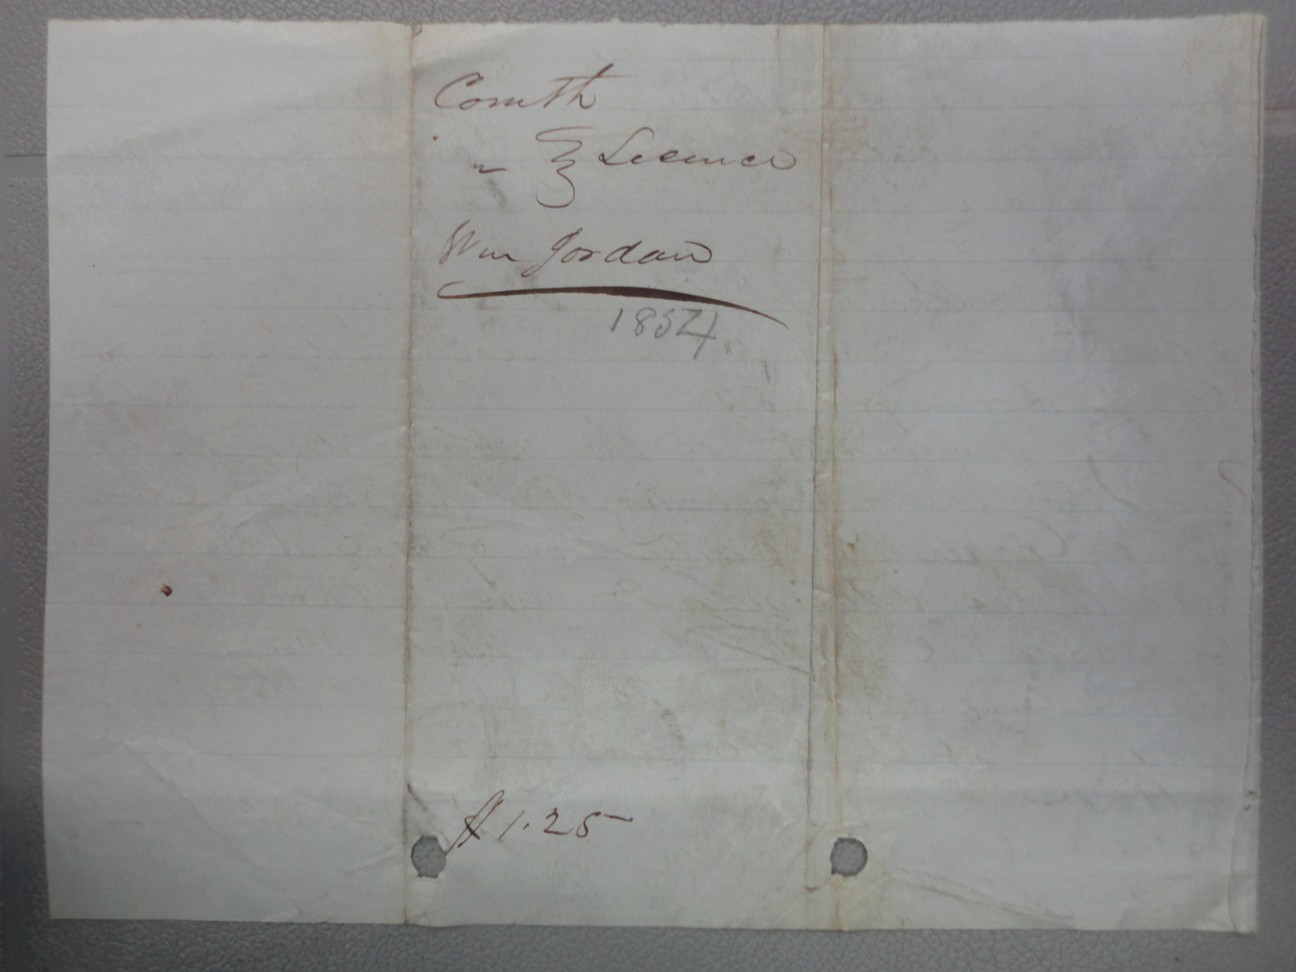 Comth
vs } Licence
Wm Jordan
1854
$1.25